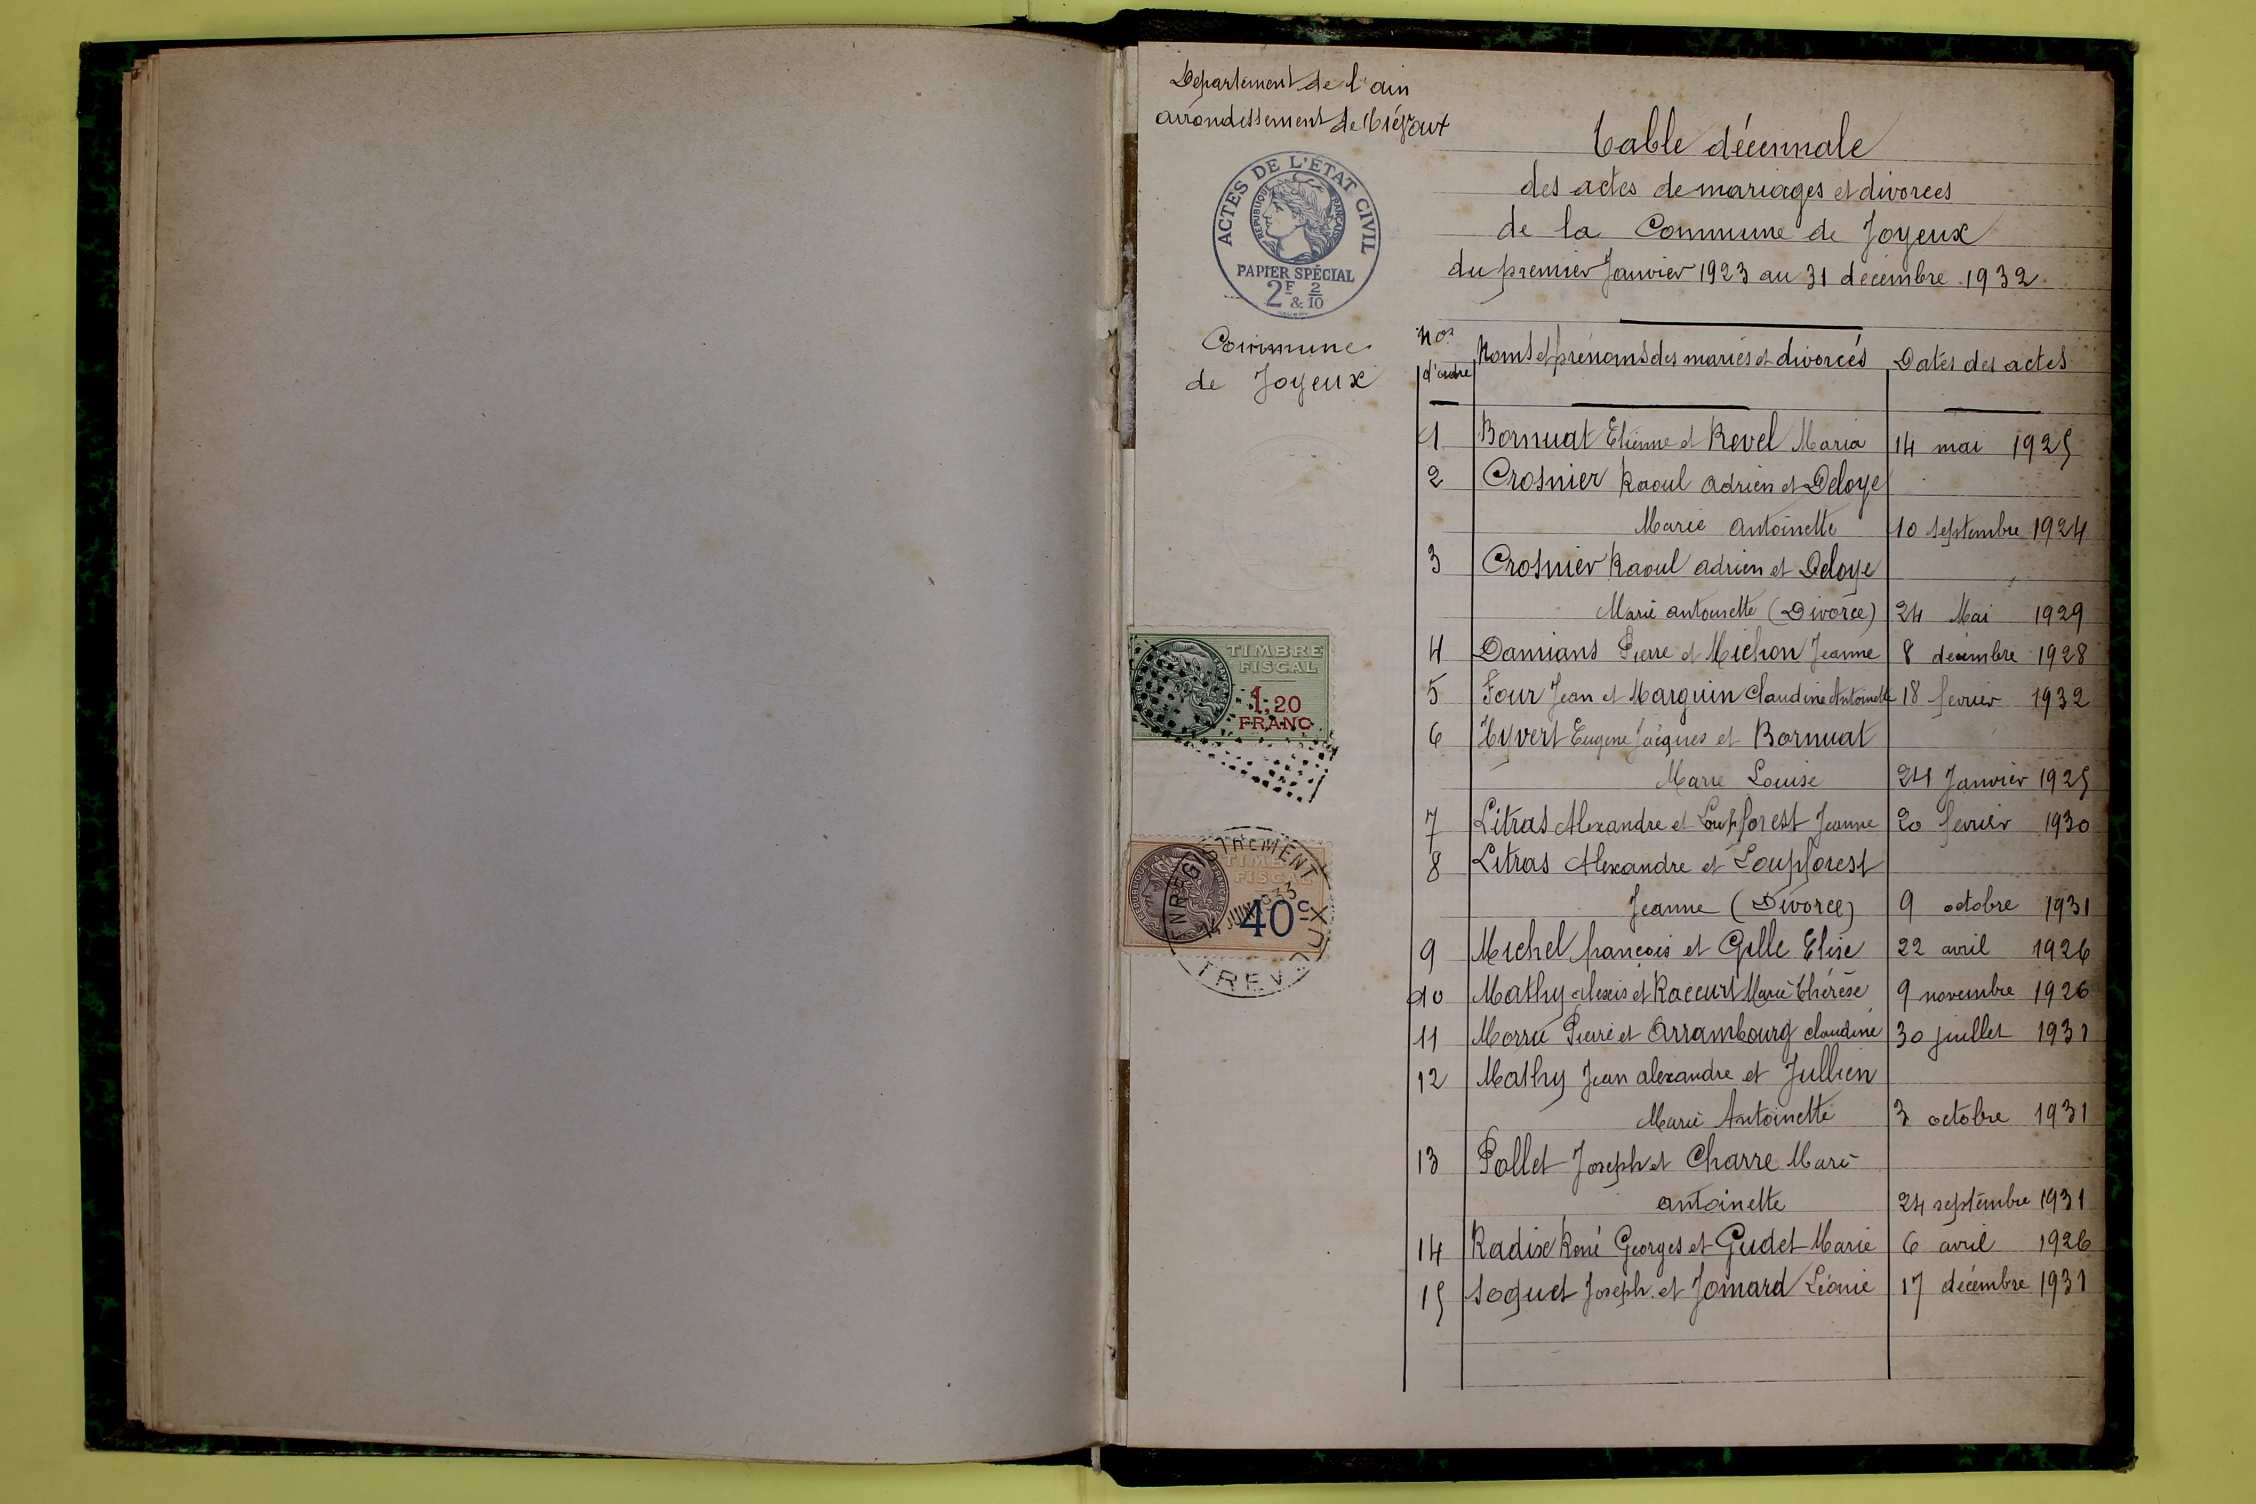 Département de l'ain
arrondissement de Trévoux
ACTES DE L'ÉTAT CIVIL
RÉPUBLIQUE FRANÇAISE
PAPIER SPÉCIAL
2F & 2/10
Commune
de Joyeux
TIMBRE
FISCAL
1,20
FRANC
ENREGISTREMENT
TIMBRE
FISCAL
JUIN 1933
40c
TREVOUX
Table décennale
des actes de mariages et divorces
de la Commune de Joyeux
du premier Janvier 1923 au 31 décembre 1932
Nos d'ordre Noms et prénoms des mariés et divorcés Dates des actes
1 Bornuat Etienne et Revel Maria 14 mai 1925
2 Crosnier Raoul adrien et Deloye
Marie antoinette 10 septembre 1924
3 Crosnier Raoul adrien et Deloye
Marie antoinette (Divorce) 24 Mai 1929
4 Damians Pierre et Michon Jeanne 8 décembre 1928
5 Four Jean et Marguin Claudine Antoinette 18 fevrier 1932
6 Hyvert Eugene Jacques et Bornuat
Marie Louise 24 Janvier 1925
7 Litras Alexandre et Loupforest Jeanne 20 fevrier 1930
8 Litras Alexandre et Loupforest
Jeanne (Divorce) 9 octobre 1931
9 Michel françois et Gille Elise 22 avril 1926
10 Mathy alexis et Raccurt Marie Thérèse 9 novembre 1926
11 Morru Pierre et Arrambourg claudine 30 juillet 1931
12 Mathy Jean alexandre et Jullien
Marie Antoinette 3 octobre 1931
13 Pollet Joseph et Charre Marie
antoinette 24 septembre 1931
14 Radix René Georges et Gudet Marie 6 avril 1926
15 Soquet Joseph et Jomard Léonie 17 décembre 1931